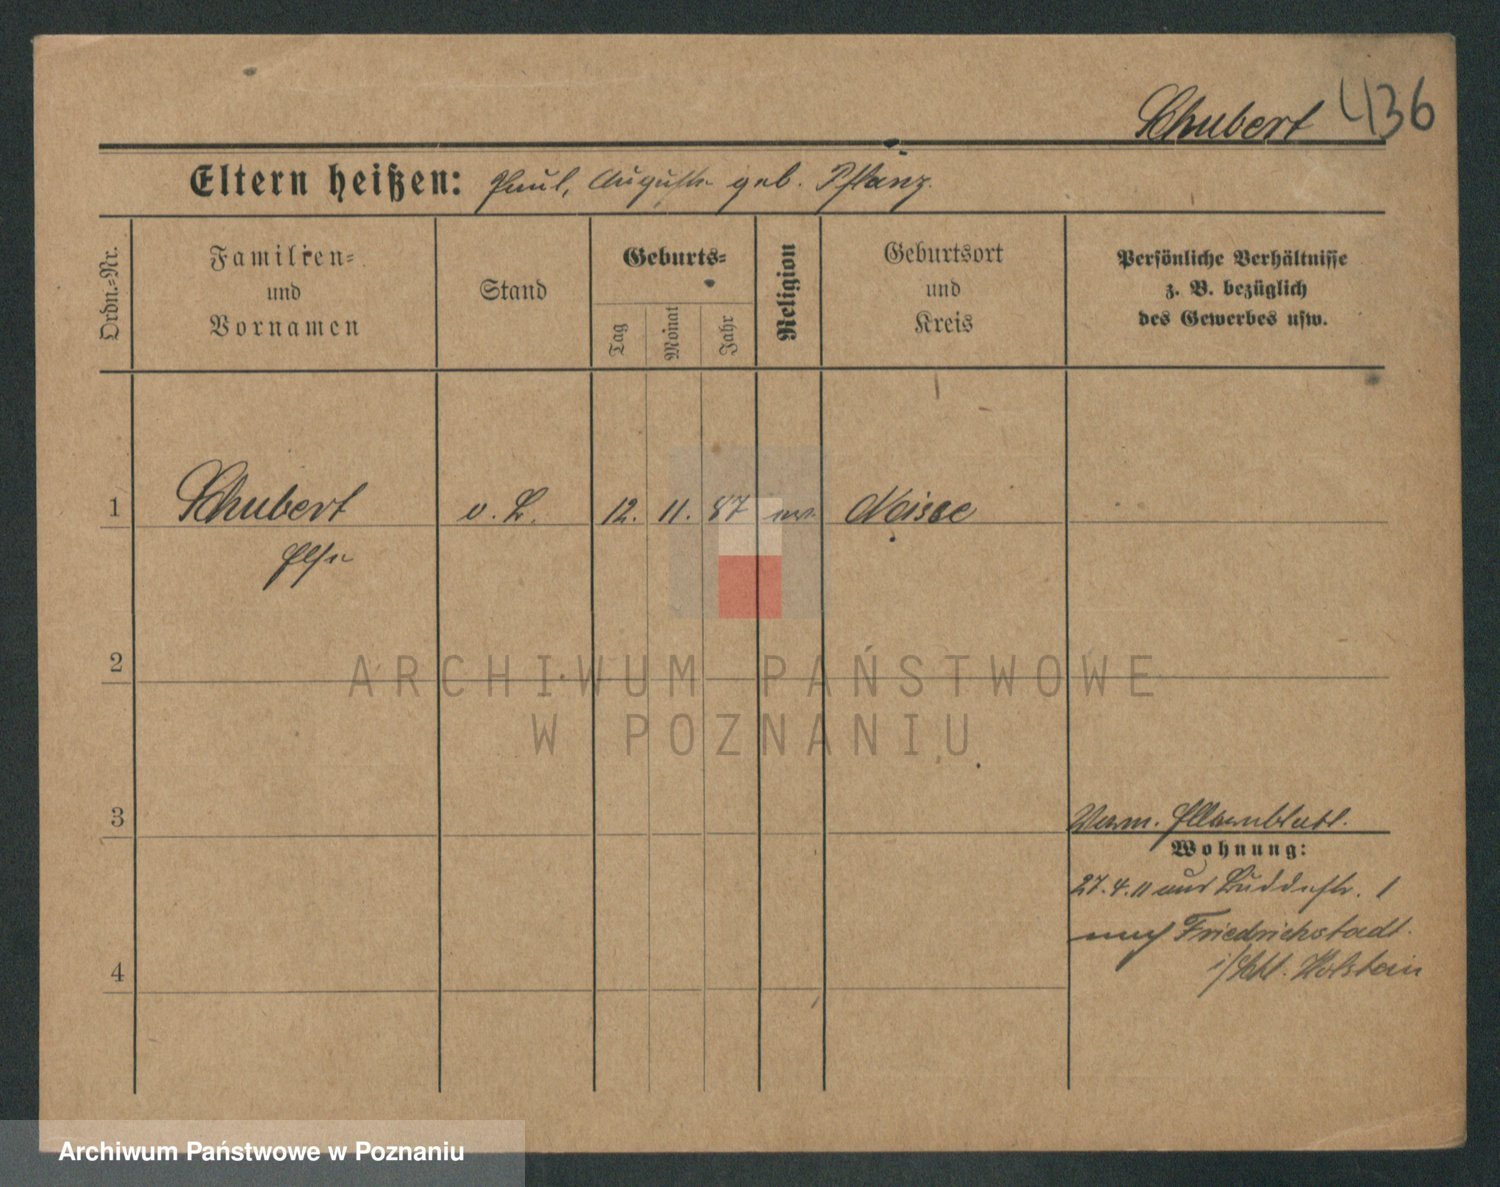 Schubert 436
Eltern heißen: Paul, Auguste geb. Pflanz.
Ordn.=Nr.
Familien=
und
Vornamen
Stand
Geburts=
Tag
Monat
Jahr
Religion
Geburtsort
und
Kreis
Persönliche Verhältnisse
z. B. bezüglich
des Gewerbes usw.
1 Schubert v. L. 12. 11. 87 Neisse
Else
2
ARCHIWUM PAŃSTWOWE
W POZNANIU
3
Verm. Elternblatt.
Wohnung:
27.4.11 aus 1
nach Friedrichstadt
i/Schl. Holstein
4
Archiwum Państwowe w Poznaniu